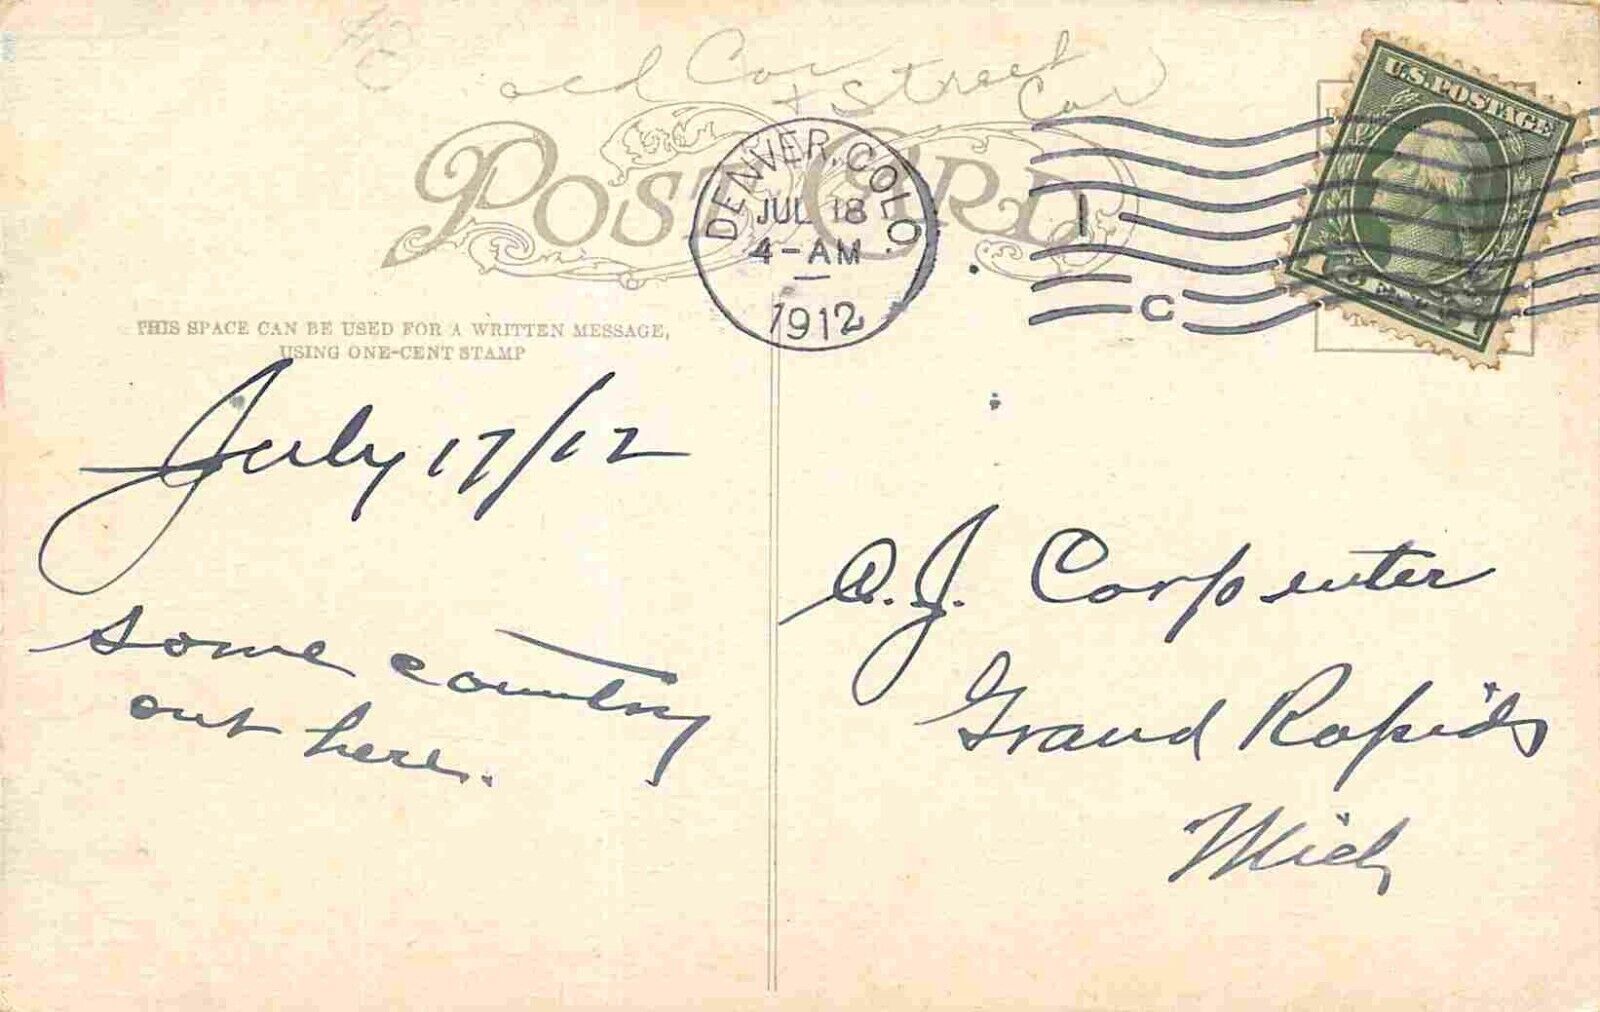 old Car
+ Street
Car
POST CARD
DENVER, COLO.
JUL 18
4-AM
1912
1
C
U.S. POSTAGE
THIS SPACE CAN BE USED FOR A WRITTEN MESSAGE,
USING ONE-CENT STAMP
July 17/12
some country
out here.
A. J. Carpenter
Grand Rapids
Mich